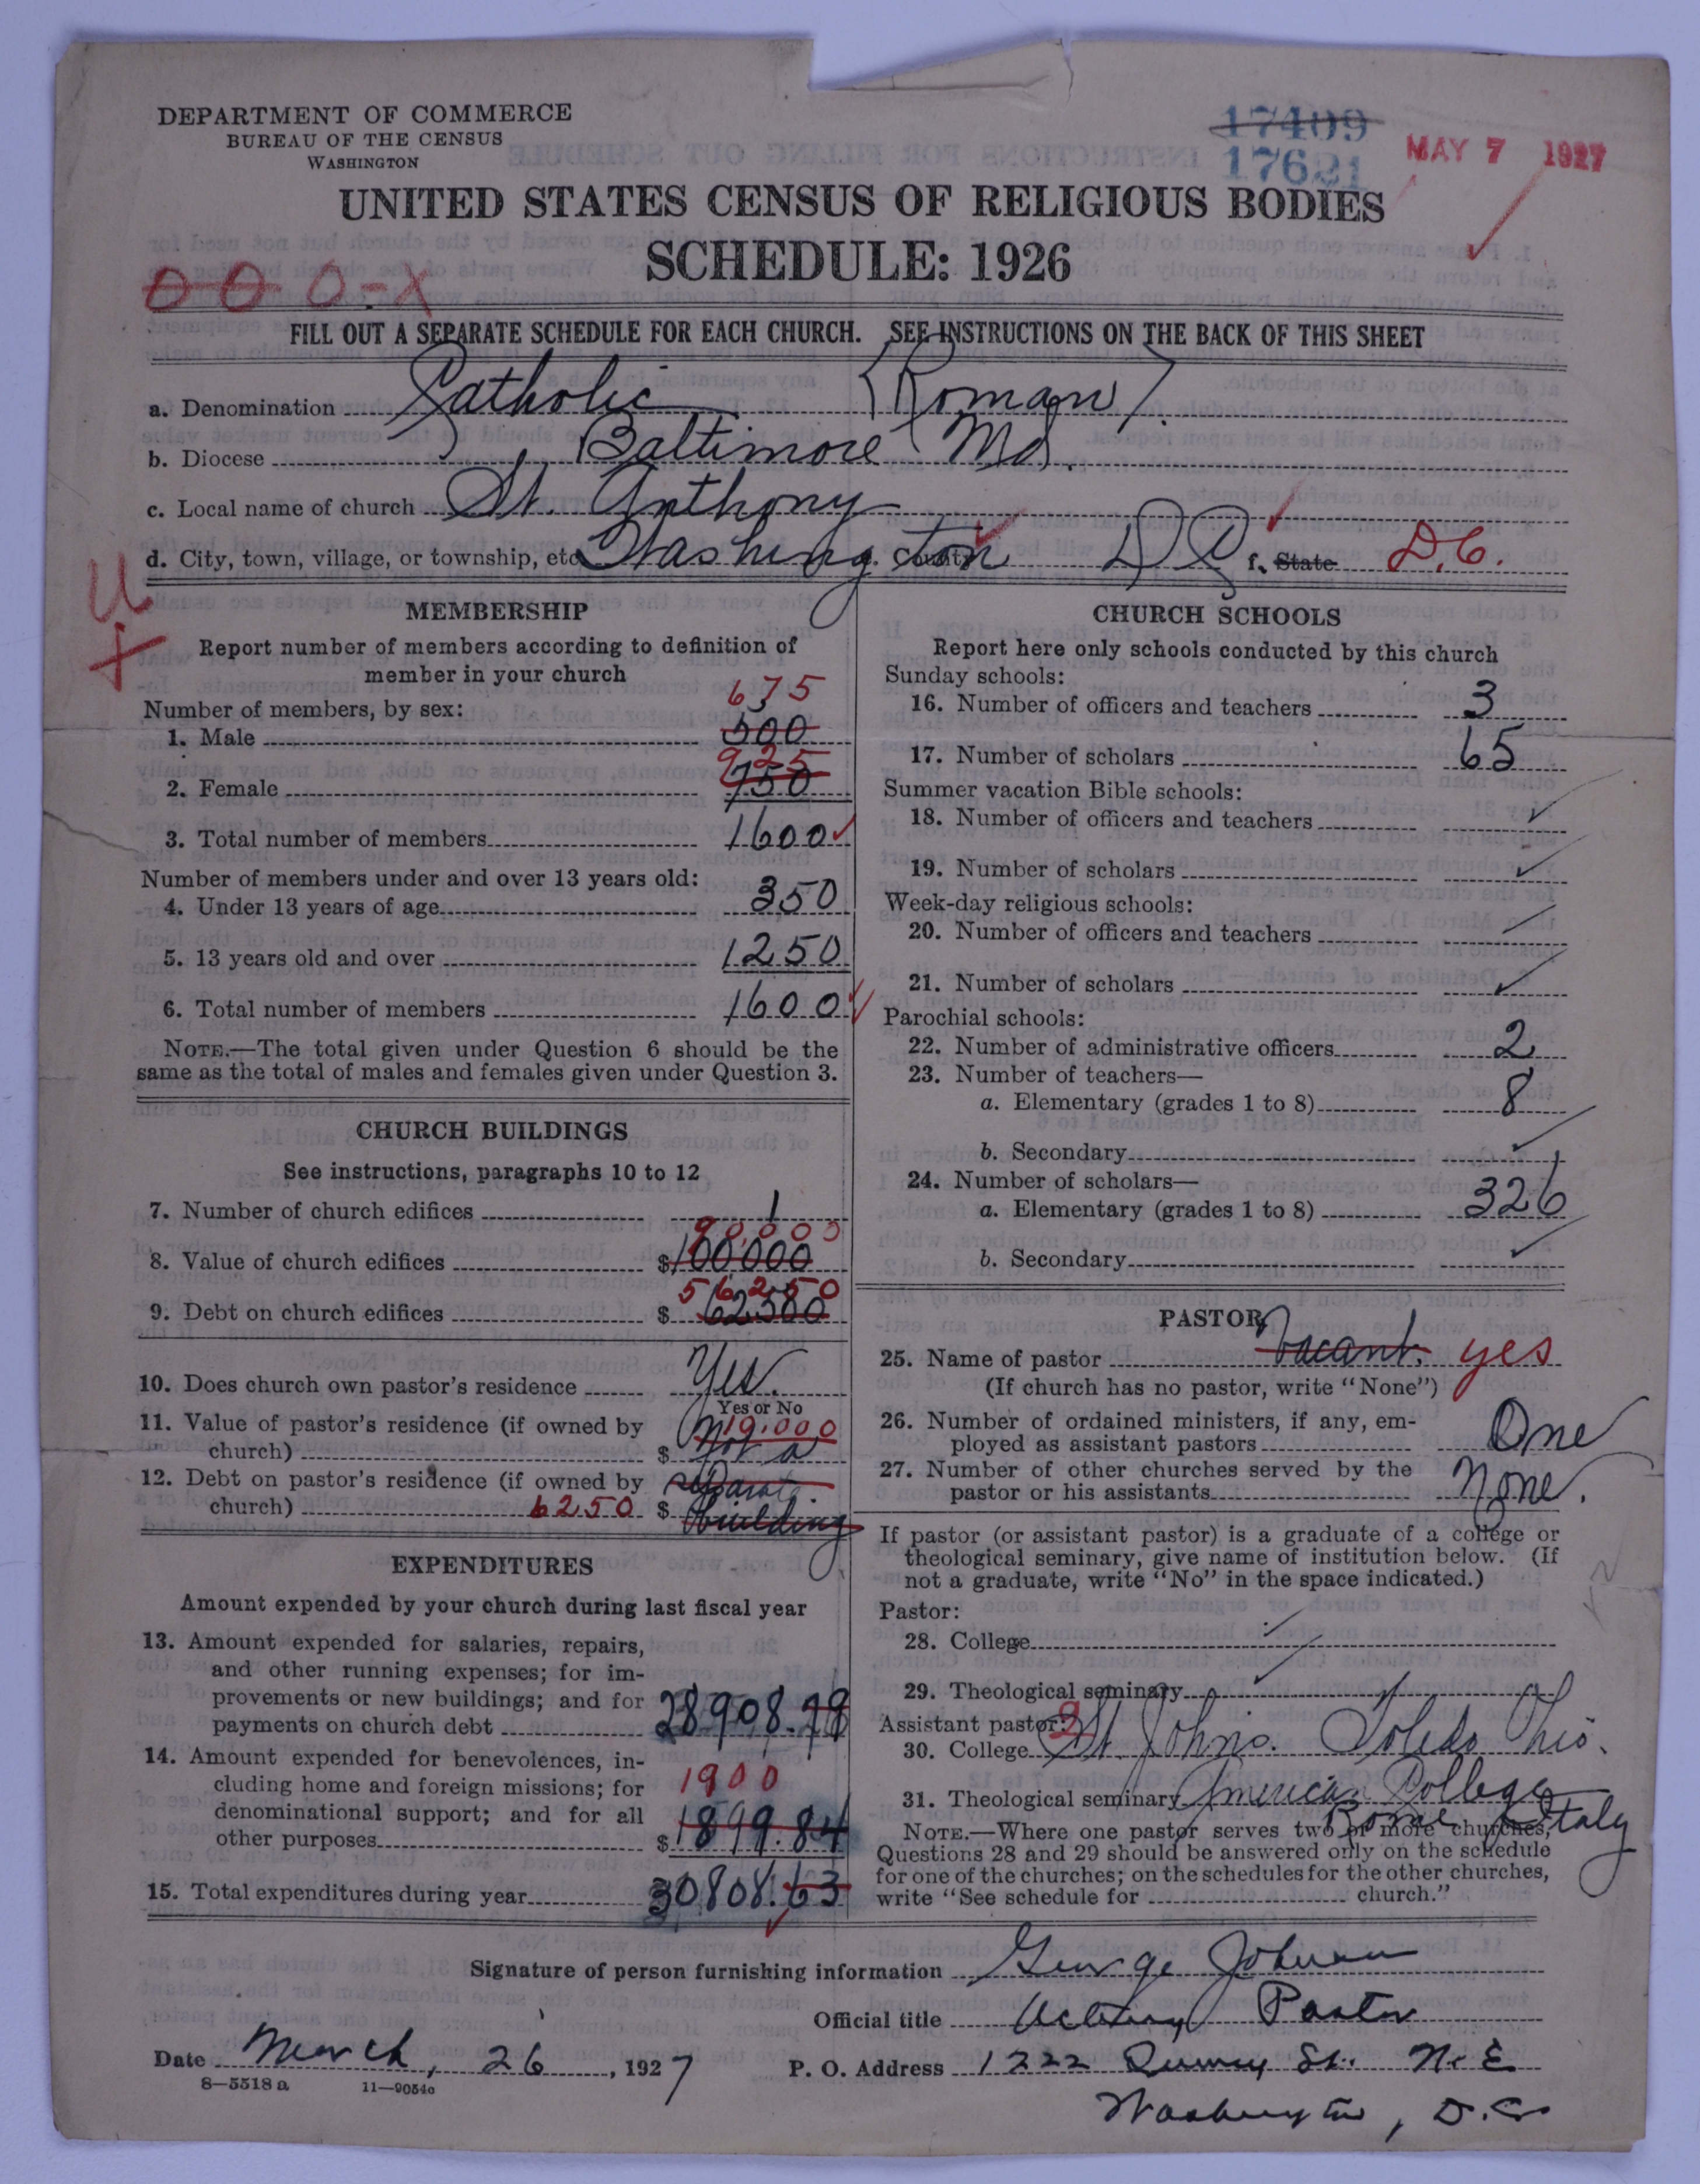 DEPARTMENT OF COMMERCE
BUREAU OF THE CENSUS
WASHINGTON
17409
17621
MAY 7 1927
UNITED STATES CENSUS OF RELIGIOUS BODIES
SCHEDULE: 1926
0 0 0-X
FILL OUT A SEPARATE SCHEDULE FOR EACH CHURCH. SEE INSTRUCTIONS ON THE BACK OF THIS SHEET
a. Denomination Catholic (Roman)
b. Diocese Baltimore Md.
c. Local name of church St. Anthony
d. City, town, village, or township, etc Washington D C f. State D.C.
U
X
MEMBERSHIP
Report number of members according to definition of
member in your church
Number of members, by sex:
675
1. Male 500
925
2. Female 750
3. Total number of members 1600
Number of members under and over 13 years old:
4. Under 13 years of age 350
5. 13 years old and over 1250
6. Total number of members 1600
NOTE.—The total given under Question 6 should be the
same as the total of males and females given under Question 3.
CHURCH BUILDINGS
See instructions, paragraphs 10 to 12
7. Number of church edifices 1
90,000
8. Value of church edifices $100000
56250
9. Debt on church edifices $ 62500
10. Does church own pastor's residence Yes.
Yes or No
11. Value of pastor's residence (if owned by 10.000
church) $ Not a
12. Debt on pastor's residence (if owned by separate
church) 6250 $ building
EXPENDITURES
Amount expended by your church during last fiscal year
13. Amount expended for salaries, repairs,
and other running expenses; for im-
provements or new buildings; and for
payments on church debt 28908.79
14. Amount expended for benevolences, in-
cluding home and foreign missions; for 1900
denominational support; and for all
other purposes $1899.84
15. Total expenditures during year 30808.63
CHURCH SCHOOLS
Report here only schools conducted by this church
Sunday schools:
16. Number of officers and teachers 3
17. Number of scholars 65
Summer vacation Bible schools:
18. Number of officers and teachers
19. Number of scholars
Week-day religious schools:
20. Number of officers and teachers
21. Number of scholars
Parochial schools:
22. Number of administrative officers 2
23. Number of teachers—
a. Elementary (grades 1 to 8) 8
b. Secondary
24. Number of scholars—
a. Elementary (grades 1 to 8) 326
b. Secondary
PASTOR
25. Name of pastor Vacant. yes
(If church has no pastor, write "None")
26. Number of ordained ministers, if any, em-
ployed as assistant pastors One
27. Number of other churches served by the
pastor or his assistants None.
If pastor (or assistant pastor) is a graduate of a college or
theological seminary, give name of institution below. (If
not a graduate, write "No" in the space indicated.)
Pastor:
28. College
29. Theological seminary
Assistant pastor: 2
30. College St Johns. Toledo Ohio.
31. Theological seminary American College
Rome Italy
NOTE.—Where one pastor serves two or more churches,
Questions 28 and 29 should be answered only on the schedule
for one of the churches; on the schedules for the other churches,
write "See schedule for church."
Signature of person furnishing information George Johnson
Official title Acting Pastor
Date March, 26, 1927 P. O. Address 1222 St. N. E
8—5518 a 11—9054a
Washington, D.C.